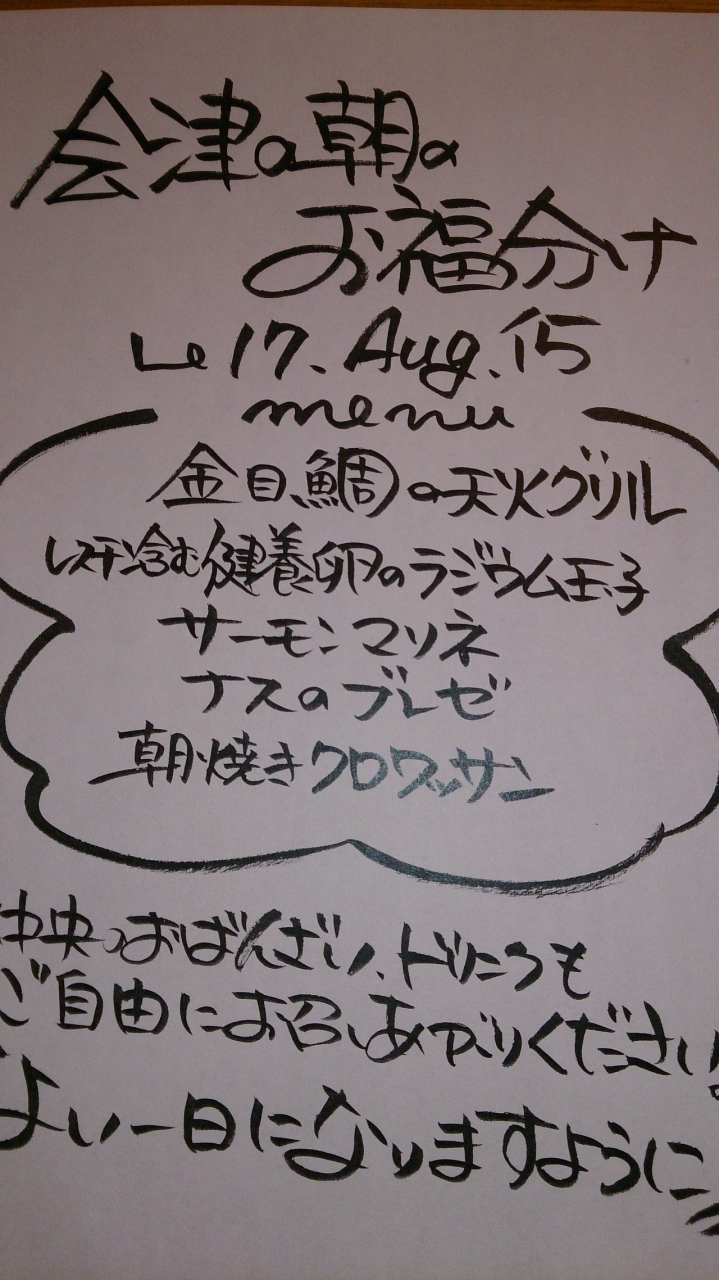 会津の朝の
お福分け
Le 17. Aug. 15
menu
金目鯛の天火グリル
レステン含む健養卵のラジウム玉子
サーモンマリネ
ナスのブレゼ
朝焼きクロワッサン
中央のおばんざい、ドリンクも
ご自由にお召しあがりください。
よい一日になりますように